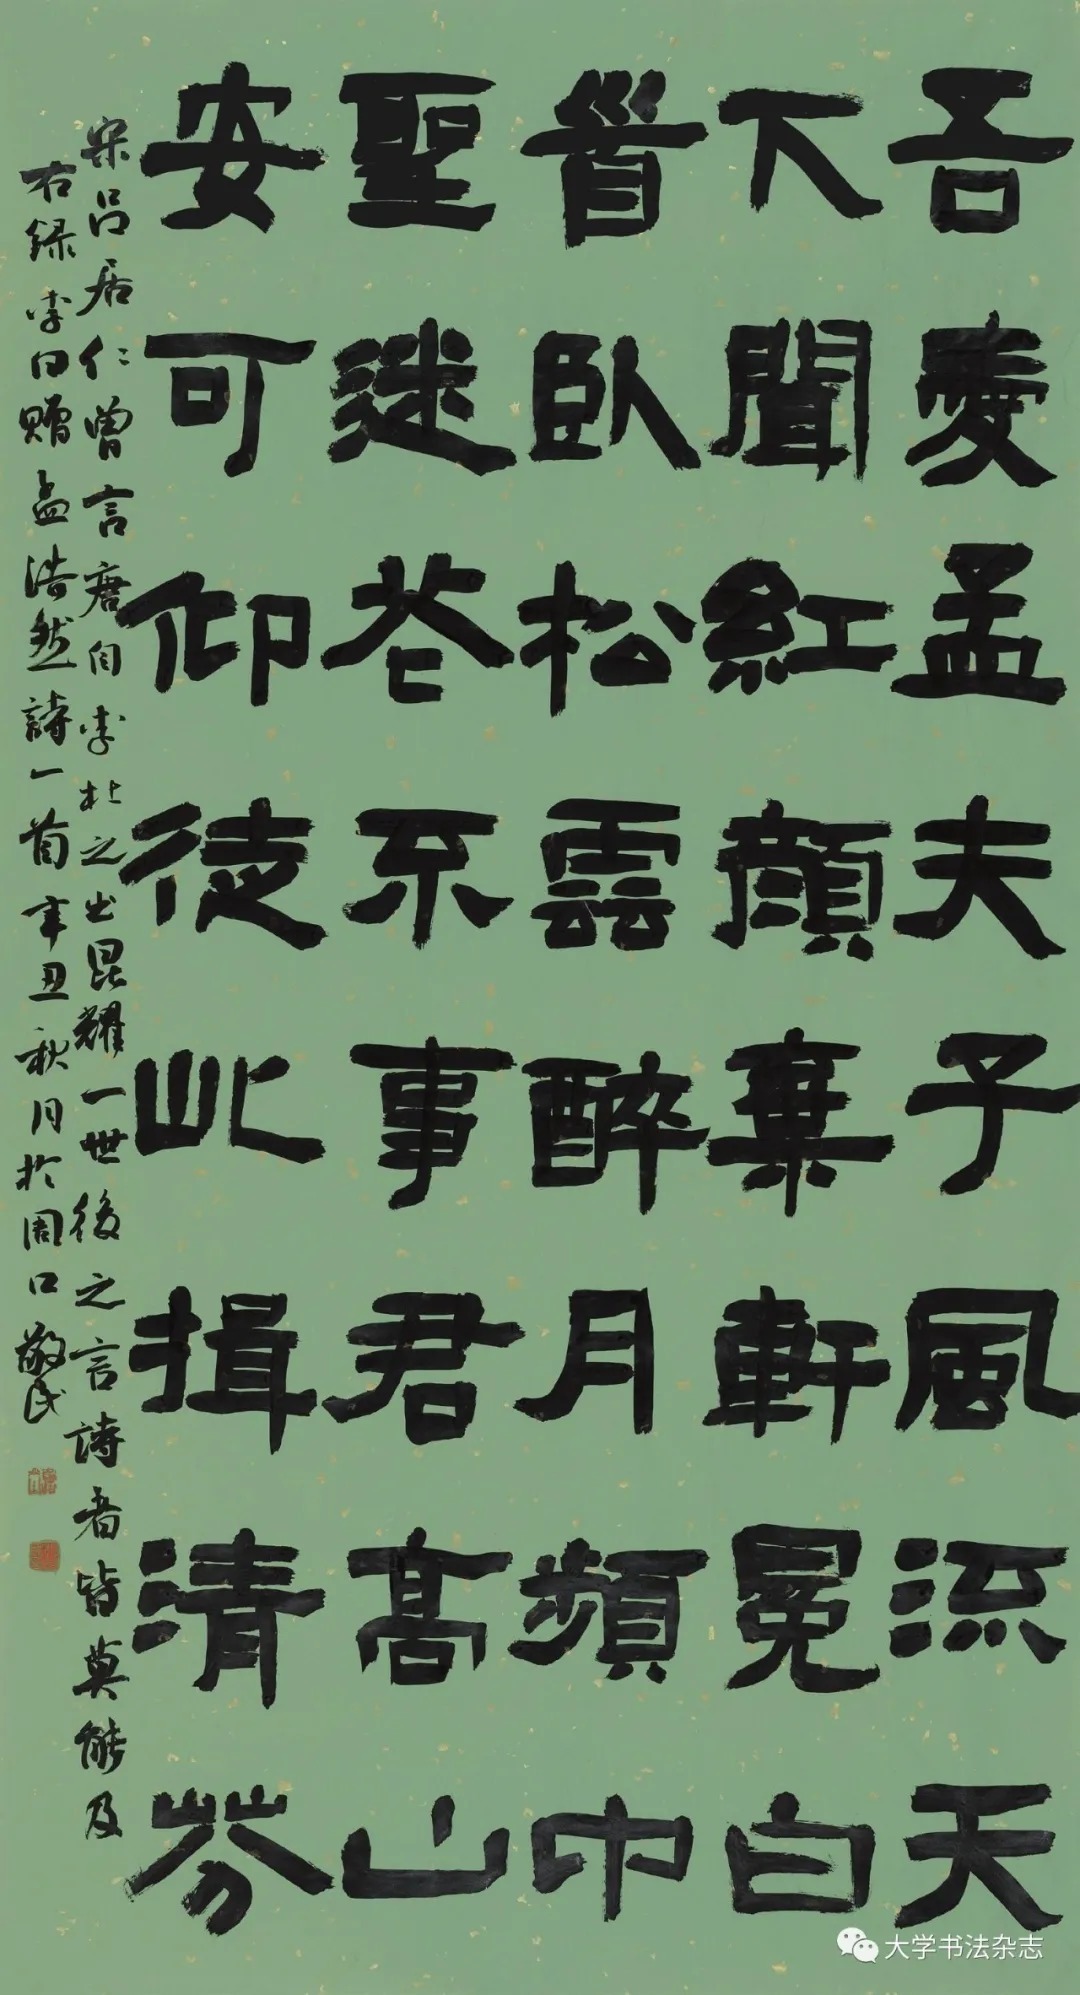 吾愛孟夫子風流天
下聞紅顏棄軒冕白
首臥松雲醉月頻中
聖迷花不事君高山
安可仰徒此揖清芬
宋呂居仁曾言唐自李杜之出昆耀一世後之言詩者皆莫能及
右録李白贈孟浩然詩一首辛丑秋月於周口敬民
大学书法杂志